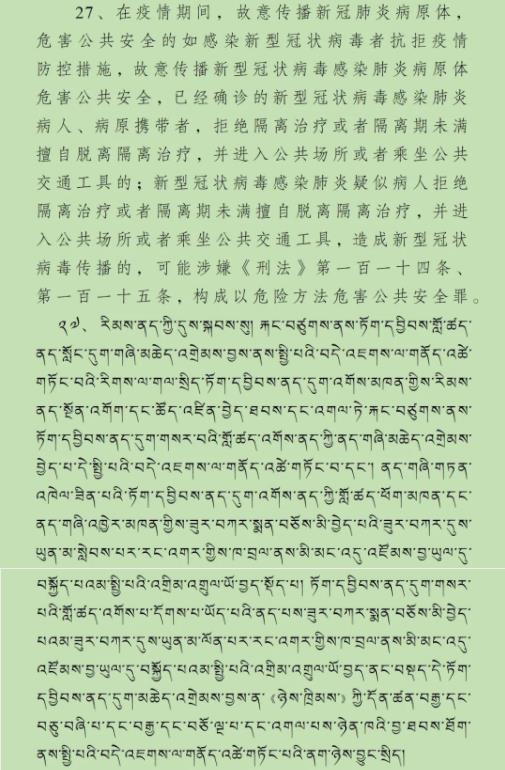 27、在疫情期间，故意传播新冠肺炎病原体，
危害公共安全的如感染新型冠状病毒者抗拒疫情
防控措施，故意传播新型冠状病毒感染肺炎病原体
危害公共安全，已经确诊的新型冠状病毒感染肺炎
病人、病原携带者，拒绝隔离治疗或者隔离期未满
擅自脱离隔离治疗，并进入公共场所或者乘坐公共
交通工具的；新型冠状病毒感染肺炎疑似病人拒绝
隔离治疗或者隔离期未满擅自脱离隔离治疗，并进
入公共场所或者乘坐公共交通工具，造成新型冠状
病毒传播的，可能涉嫌《刑法》第一百一十四条、
第一百一十五条，构成以危险方法危害公共安全罪。
༢༧、 རིམས་ནད་ཀྱི་དུས་སྐབས་སུ། རྐང་བཙུགས་ནས་ཏོག་དབྱིབས་གློ་ཚད་
ནད་སློང་དུག་གཞི་མཆེད་འགྲེམས་བྱས་ནས་སྤྱི་པའི་བདེ་འཇགས་ལ་གནོད་འཚེ་
གཏོང་བའི་རིགས་ལ་གལ་སྲིད་ཏོག་དབྱིབས་ནད་དུག་འགོས་མཁན་གྱིས་རིམས་
ནད་སྔོན་འགོག་དང་ཚོད་འཛིན་བྱེད་ཐབས་དང་འགལ་ཏེ་རྐང་བཙུགས་ནས་
ཏོག་དབྱིབས་ནད་དུག་གསར་བའི་གློ་ཚད་འགོས་ནད་ཀྱི་ནད་གཞི་མཆེད་འགྲེམས་
བྱེད་པ་དེ་སྤྱི་པའི་བདེ་འཇགས་ལ་གནོད་འཚེ་གཏོང་བ་དང་། ནད་གཞི་གཏན་
འཁེལ་ཟིན་པའི་ཏོག་དབྱིབས་ནད་དུག་འགོས་ནད་ཀྱི་གློ་ཚད་ཕོག་མཁན་དང་
ནད་གཞི་འཁྱེར་མཁན་གྱིས་ཟུར་བཀར་སྨན་བཅོས་མི་བྱེད་པའི་ཟུར་བཀར་དུས་
ཡུན་མ་སླེབས་པར་རང་འགར་གྱིས་ཁ་བྲལ་ནས་མི་མང་འདུ་འཛོམས་བྱ་ཡུལ་དུ་
བསྐྱོད་པའམ་སྤྱི་པའི་འགྲིམ་འགྲུལ་ཡོ་བྱད་སྡོད་པ། ཏོག་དབྱིབས་ནད་དུག་གསར་
པའི་གློ་ཚད་འགོས་པ་དོགས་པ་ཡོད་པའི་ནད་པས་ཟུར་བཀར་སྨན་བཅོས་མི་བྱེད་
པའམ་ཟུར་བཀར་དུས་ཡུན་མ་ལོན་པར་རང་འགར་གྱིས་ཁ་བྲལ་ནས་མི་མང་འདུ་
འཛོམས་བྱ་ཡུལ་དུ་བསྐྱོད་པའམ་སྤྱི་པའི་འགྲིམ་འགྲུལ་ཡོ་བྱད་ནང་བསྡད་དེ་ཏོག་
དབྱིབས་ནད་དུག་མཆེད་འགྲེམས་བྱས་ན་《ཉེས་ཁྲིམས་》ཀྱི་དོན་ཚན་བརྒྱ་དང་
བཅུ་བཞི་པ་དང་བརྒྱ་དང་བཅོ་ལྔ་པ་དང་འགལ་པས་ཉེན་ཁའི་བྱ་ཐབས་ཐོག་
ནས་སྤྱི་པའི་བདེ་འཇགས་ལ་གནོད་འཚེ་གཏོང་པའི་ནག་ཉེས་བྱུང་སྲིད།